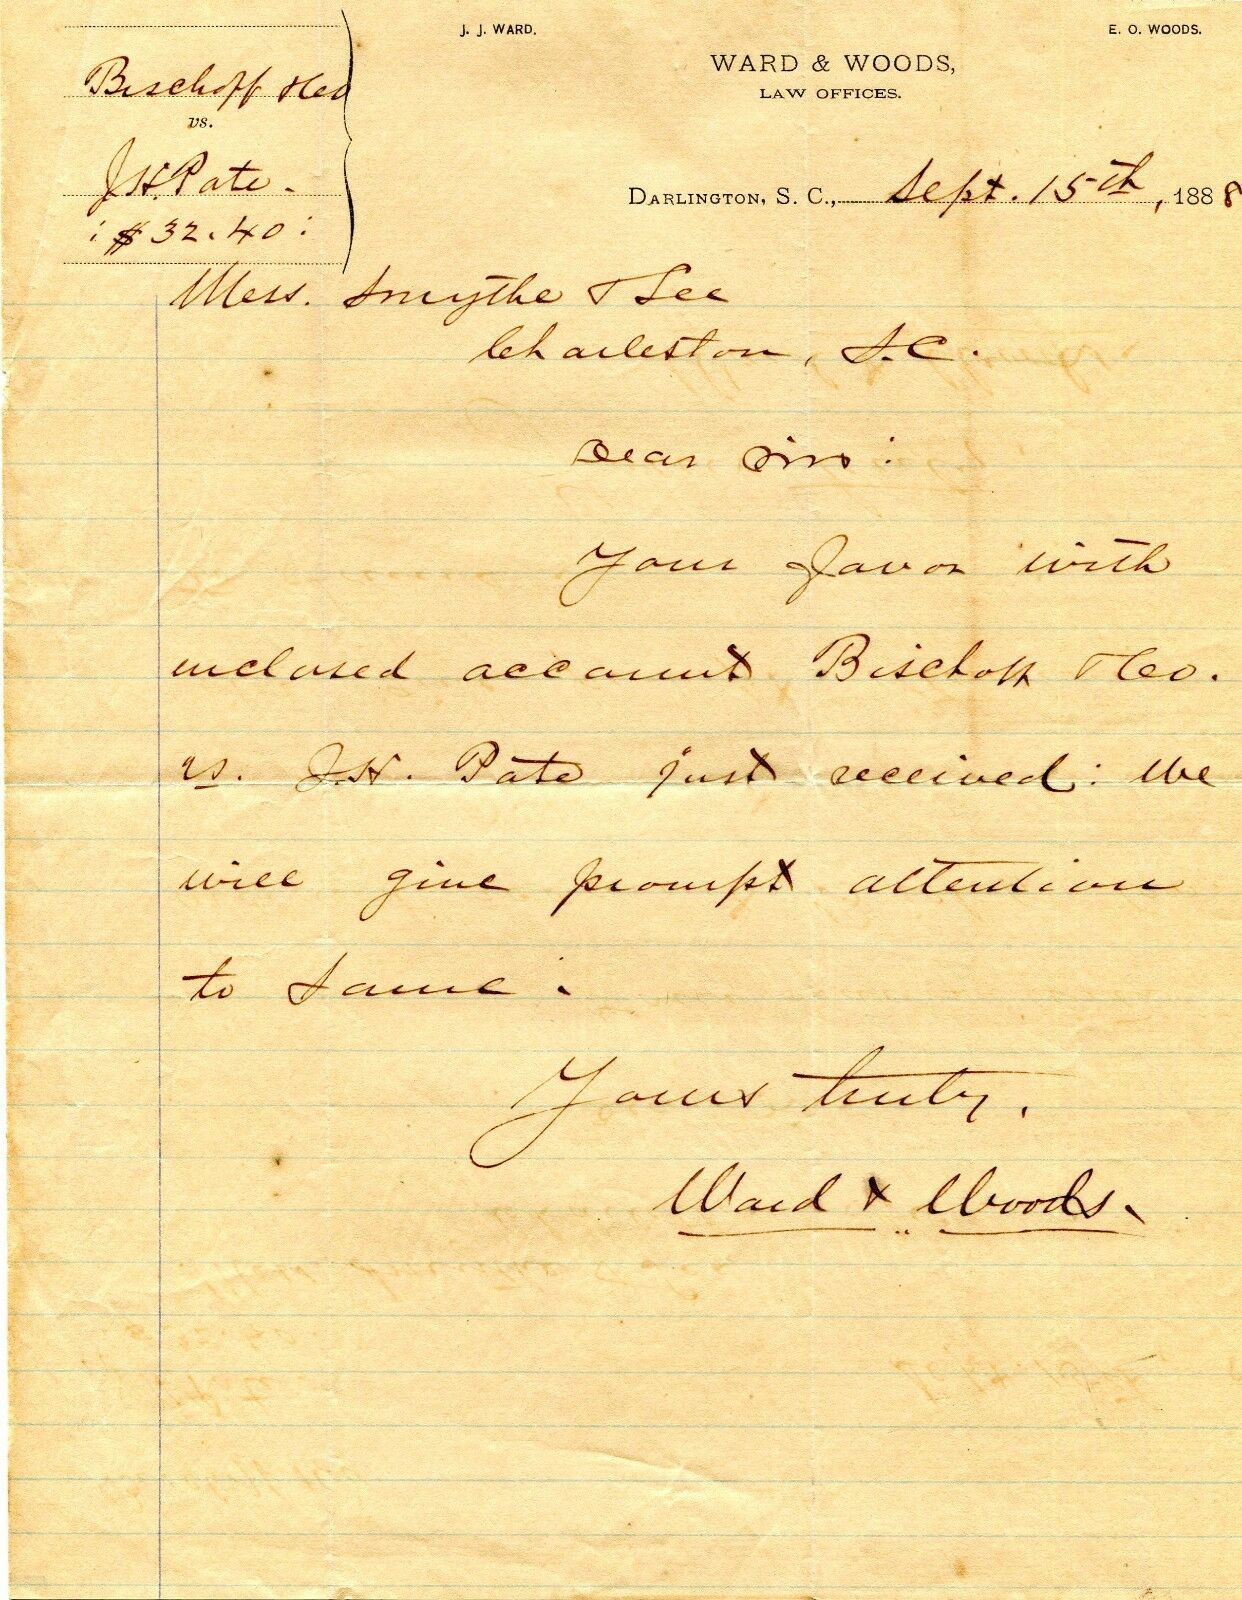 J. J. WARD.
E. O. WOODS.
WARD & WOODS,
LAW OFFICES.
Bischoff & Co
vs.
J.H. Pate.
: $32.40 :
DARLINGTON, S. C., Sept. 15th, 1888
Mess. Smythe & Lee
Charleston, S.C.
Dear Sirs:
Your favor with
inclosed account Bischoff & Co.
vs. J.H. Pate just received: We
will give prompt attention
to same.
Yours truly,
Ward & Woods.